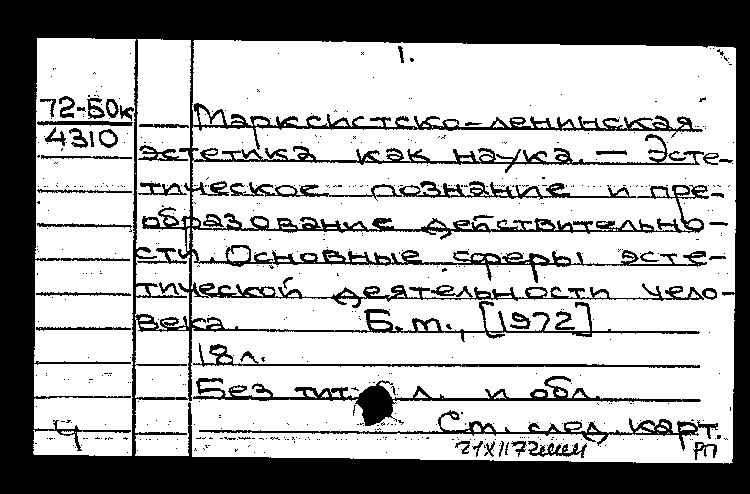 1.
72-Б0к
4310
Марксистско-ленинская
эстетика как наука. — Эсте-
тическое познание и пре-
образование действительно-
сти. Основные сферы эсте-
тической деятельности чело-
века. Б. т., [1972].
18 л.
Без тит. л. и обл.
Ст. след. карт.
Ч
РП